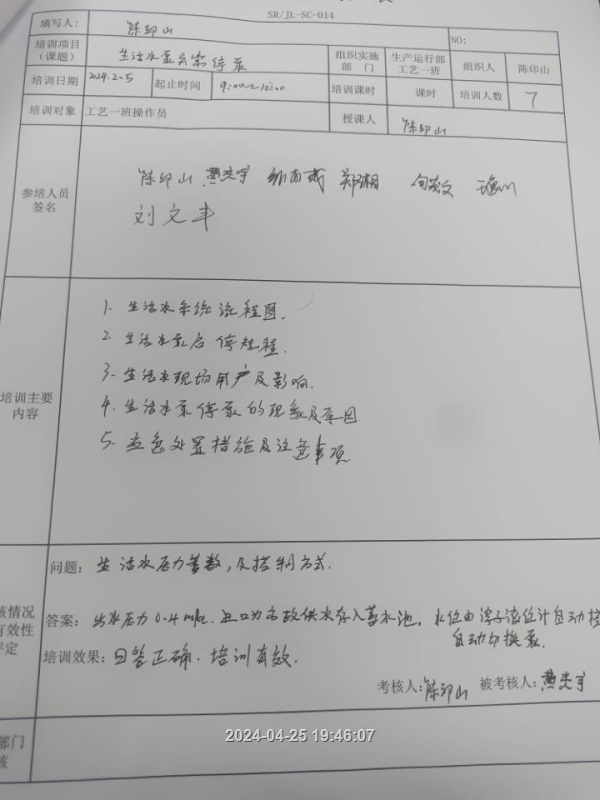 SR/JL-SC-014
填写人： 陈印山 NO:
培训项目（课题） 生活水泵房 停泵 组织实施部门 生产运行部工艺一班 组织人 陈印山
培训日期 2024.2.5 起止时间 9:00~10:00 培训课时 课时 培训人数 7
培训对象 工艺一班操作员 授课人 陈印山
参培人员签名
陈印山 郑湘
刘文丰
培训主要内容
1. 生活水系统流程图.
2. 生活水泵启停规程.
3. 生活水现场用户及影响.
4. 生活水泵停泵的现象及原因
5. 应急处置措施及注意事项
核情况
有效性
评定
问题： 生活水压力参数,及控制方式.
答案： 出水压力0.4mpa. 进口为市政供水存入蓄水池, 水位由浮子液位计自动控
自动切换泵.
培训效果： 回答正确. 培训有效.
考核人: 陈印山 被考核人:
部门
核
2024-04-25 19:46:07